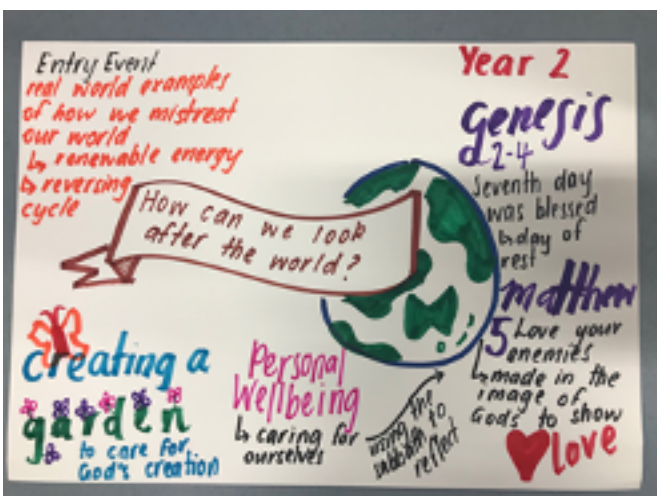 Entry Event
real world examples
of how we mistreat
our world
↳ renewable energy
↳ reversing
cycle
Year 2
Genesis
2-4
Seventh day
was blessed
↳ day of
rest
How can we look
after the world?
Matthew
5 Love your
enemies
↳ made in the
image of
Gods to show
love
creating a
garden
to care for
God's creation
Personal
Wellbeing
↳ caring for
ourselves
using the
sabbath to
reflect